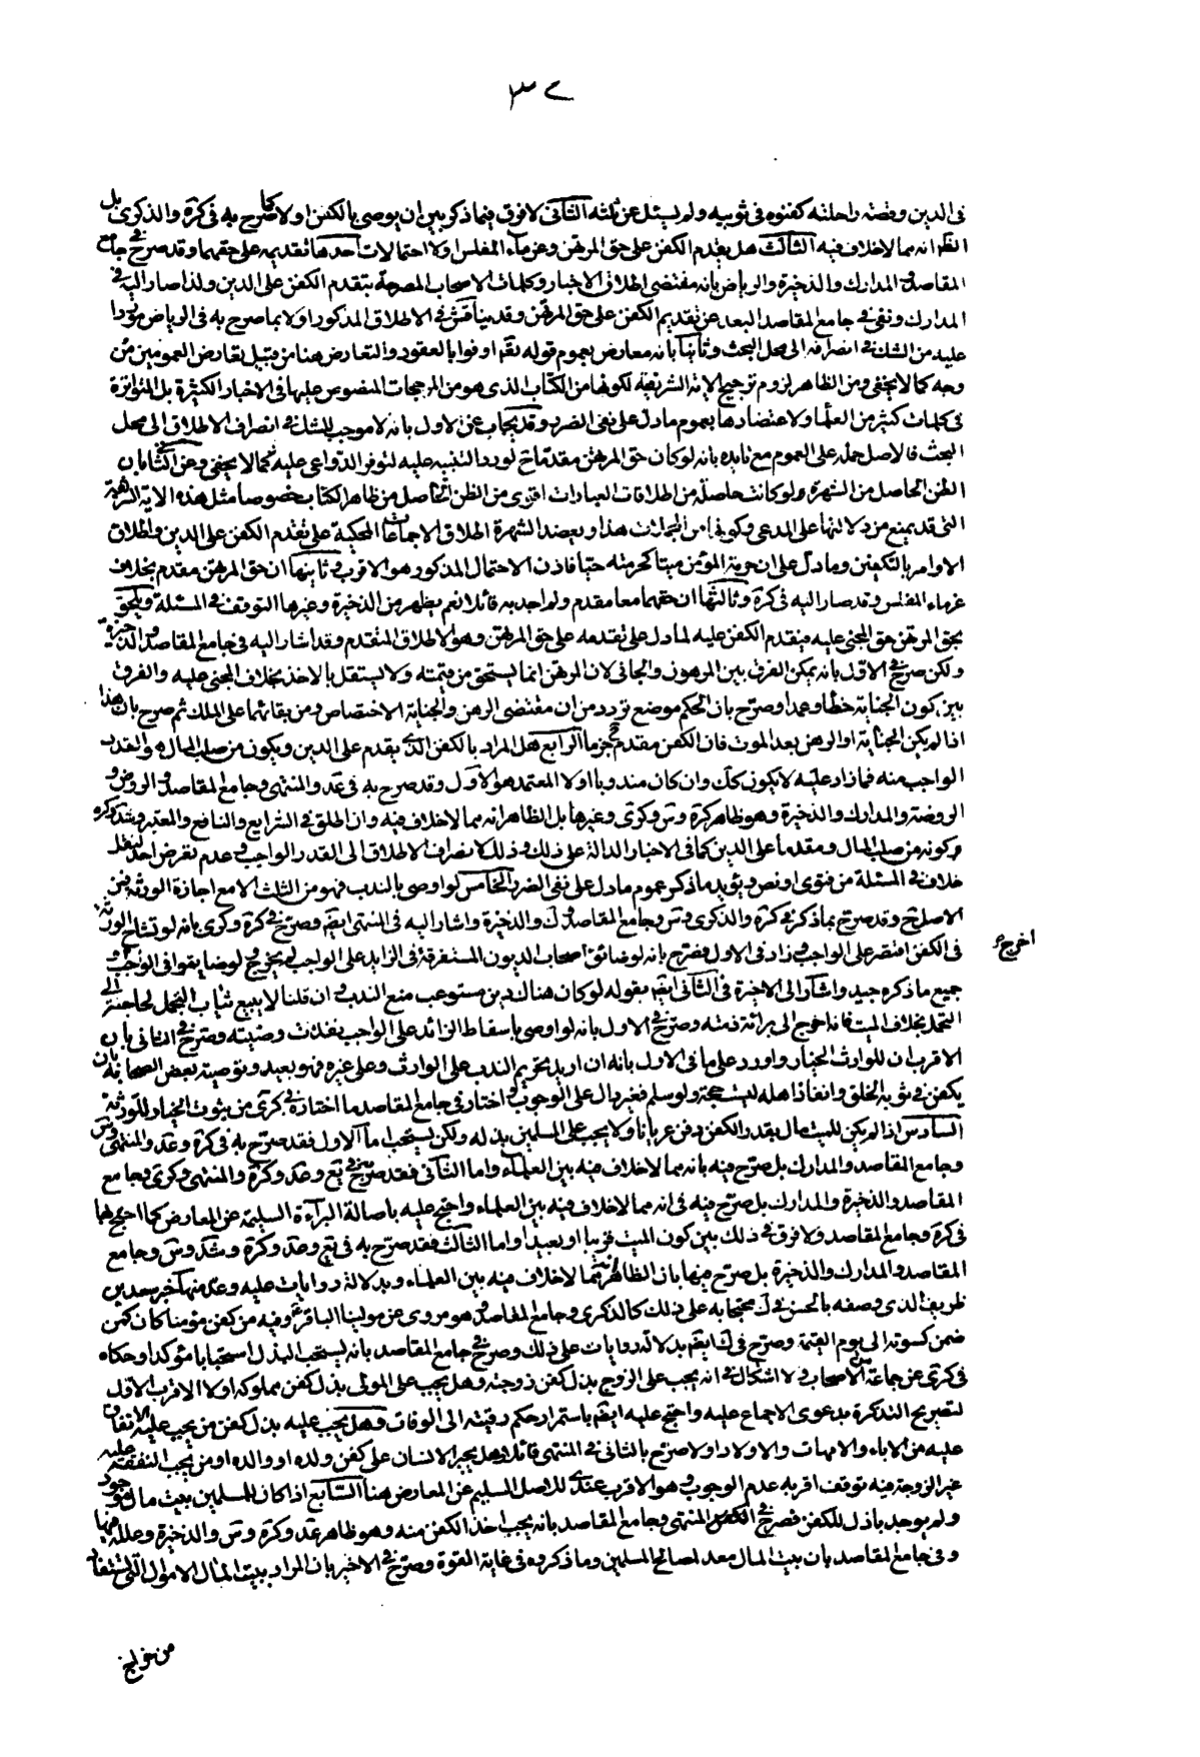 في الدين وقضته راحلته كفنوه في ثوبيه ولم يسئل عن ثلثه الثاني لا فرق فيما ذكر بين ان يوصى بالكفن اولا كما صرح به في كرة والذكرى بل
الظ انه مما لا خلاف فيه الثالث هل يقدم الكفن على حق المرتهن وغرماء المفلس اولا احتمالات احدها تقديمه على حقهما وقد صرح في جامع
المقاصد والمدارك والذخيرة والرياض بانه مقتضى اطلاق الاخبار وكلمات الاصحاب المصرحة بتقدم الكفن على الدين ولذا صار اليه في
المدارك ونفى في جامع المقاصد البعد عن تقديم الكفن على حق المرتهن وقد يناقش في الاطلاق المذكور اولا بما صرح به في الرياض
عليه من الشك في انصرافه الى محل البحث وثانيا بانه معارض بعموم قوله تعم اوفوا بالعقود والتعارض هنا من قبيل تعارض العمومين من
وجه كما لا يخفى ومن الظاهر لزوم ترجيح الاية الشريفة لكونها من الكتاب الذي هو من المرجحات المنصوص عليها في الاخبار الكثيرة بل المتواترة
في كلمات كثير من العلماء ولاعتضادها بعموم ما دل على نفى الضرر وقد يجاب عن الاول بانه لا موجب للشك في انصراف الاطلاق الى محل
البحث فالاصل حمله على العموم مع تايده بانه لو كان حق المرتهن مقدما ح لورد التنبيه عليه لتوفر الدواعى عليه كما لا يخفى وعن الثاني بان
الظن الحاصل من الشهرة ولو كانت حاصلة من اطلاقات العبارات اقوى من الظن الحاصل من ظاهر الكتاب خصوصا مثل هذه الاية الشريفة
التي قد يمنع من دلالتها على المدعى وكونها من المجملات هذا ويعضد الشهرة اطلاق الاجماعات المحكية على تقدم الكفن على الدين واطلاق
الاوامر بالتكفين وما دل على ان حرمة المؤمن ميتا كحرمته حيا فاذن الاحتمال المذكور هو الاقرب وثانيها ان حق المرتهن مقدم بخلاف
غرماء المفلس وقد صار اليه في كرة وثالثها ان حقهما معا مقدم ولم اجد به قائلا نعم يظهر من الذخيرة وغيرها التوقف في المسئلة ويلحق
بحق المرتهن حق المجنى عليه فيقدم الكفن عليه لما دل على تقدمه على حق المرتهن وهو الاطلاق المتقدم وقد اشار اليه في جامع المقاصد والذخيرة
ولكن صرح في الاول بانه يمكن الفرق بين المرهون والجاني لان المرتهن انما يستحق من قيمته ولا يستقل بالاخذ بخلاف المجنى عليه والفرق
بين كون الجناية خطأ وعمدا وصرح بان الحكم موضع تردد من ان مقتضى الرهن والجناية الاختصاص ومن بقائهما على الملك ثم صرح بان هذا
اذا لم يكن الجناية او الرهن بعد الموت فان الكفن مقدم ح جزما الرابع هل المراد بالكفن الذي يقدم على الدين ويكون من صلب المال هو القدر
الواجب منه فما زاد عليه لا يكون كك وان كان مندوبا اولا المعتمد هو الاول وقد صرح به في عد والمنتهى وجامع المقاصد والروض و
الروضة والمدارك والذخيرة وهو ظاهر كرة وس وكرى وغيرها بل الظاهر انه مما لا خلاف فيه وان اطلق في الشرايع والنافع والمعتبر
وكونه من صلب المال ومقدما على الدين كما في الاخبار الدالة على ذلك وذلك لانصراف الاطلاق الى القدر الواجب وعدم تعرض احد لنقل
خلاف في المسئلة من فتوى او نص ويؤيد ما ذكر عموم ما دل على نفى الضرر الخامس لو اوصى بالندب فهو من الثلث الا مع اجازة الورثة فمن
الاصل ح وقد صرح بما ذكر في كرة والذكرى وس وجامع المقاصد وك والذخيرة واشار اليه في المنتهى ايضم وصرح في كرة وكرى بانه لو تشاح الورثة
في الكفن اقتصر على الواجب وزاد في الاول فصرح بانه لو ضائق اصحاب الديون المستغرقة في الزايد على الواجب لم يخرج لو ضايقوا في الواجب و
اخرج
جميع ما ذكره جيد واشار الى الاخيرة في الثاني ايضم بقوله لو كان هناك دين مستوعب منع الندب وان قلنا لا يبيع ثياب التجمل لحاجته الى
التجمل بخلاف الميت فانه احوج الى برائة ذمته وصرح في الاول بانه لو اوصى باسقاط الزائد على الواجب نفذت وصيته وصرح في الثاني بان
الاقرب ان للوارث الخيار واورد على ما في الاول بانه ان اريد تحريم الندب على الوارث وعلى غيره فهو بعيد وتوصية بعض الصحابة بان
يكفن في ثوبه الخلق وانفاذ اهله ليست حجة ولو سلم فغير دال على الوجوب واختار في جامع المقاصد ما اختاره في كرى من ثبوت الخيار للورثة
السادس اذا لم يكن للميت مال بقدر الكفن دفن عريانا ولا يجب على المسلمين بذله ولكن يستحب اما الاول فقد صرح به في كرة وعد والمنتهى وس
وجامع المقاصد والمدارك بل صرح فيه بانه مما لا خلاف فيه بين العلماء واما الثاني فقد صرح به في يع وعد وكرة والمنتهى وكرى وجامع
المقاصد والذخيرة والمدارك بل صرح فيه في انه مما لا خلاف فيه بين العلماء واحتج عليه باصالة البراءة السليمة عن المعارض كما احتج بها
في كرة وجامع المقاصد ولا فرق في ذلك بين كون الميت قريبا او بعيدا واما الثالث فقد صرح به في يع وعد وكرة وشد وس وجامع
المقاصد والمدارك والذخيرة بل صرح فيها بان الظاهر انه مما لا خلاف فيه بين العلماء ويدلالة روايات عليه وعد منها خبر سعد بن
ظريف الذي وصفه بالحسن في ك محتجا به على ذلك كالذكرى وجامع المقاصد هو مروى عن مولينا الباقر ع وفيه من كفن مؤمنا كان كمن
ضمن كسوته الى يوم القيمة وصرح في ك ايضم بدلالة روايات على ذلك وصرح في جامع المقاصد بانه يستحب البذل استحبابا مؤكدا وحكاه
في كرى عن جماعة من الاصحاب ولا اشكال في انه يجب على الزوج بذل كفن زوجته وهل يجب على المولى بذل كفن مملوكه اولا الاقرب الاول
لتصريح التذكرة بدعوى الاجماع عليه واحتج عليه ايضم باستمرار حكم رقيته الى الوفات وهل يجب عليه بذل كفن من يجب عليه الانفاق
عليه من الاباء والامهات والاولاد اولا صرح بالثاني في المنتهى قائلا وهل يجبر الانسان على كفن ولده او والده او من يجب النفقة عليه
غير الزوجة فيه توقف اقربه عدم الوجوب وهو الاقرب عندي للاصل السليم عن المعارض هنا السابع اذا كان للمسلمين بيت مال موجود
ولم يوجد باذل للكفن فصرح في المنتهى وجامع المقاصد بانه يجب اخذ الكفن منه وهو ظاهر عد وكرة وس والذخيرة وعلله فيها
وفي جامع المقاصد بان بيت المال معد لمصالح المسلمين وما ذكروه في غاية القوة وصرح في الاخير بان المراد ببيت المال الاموال التي تستفاد
من خراج